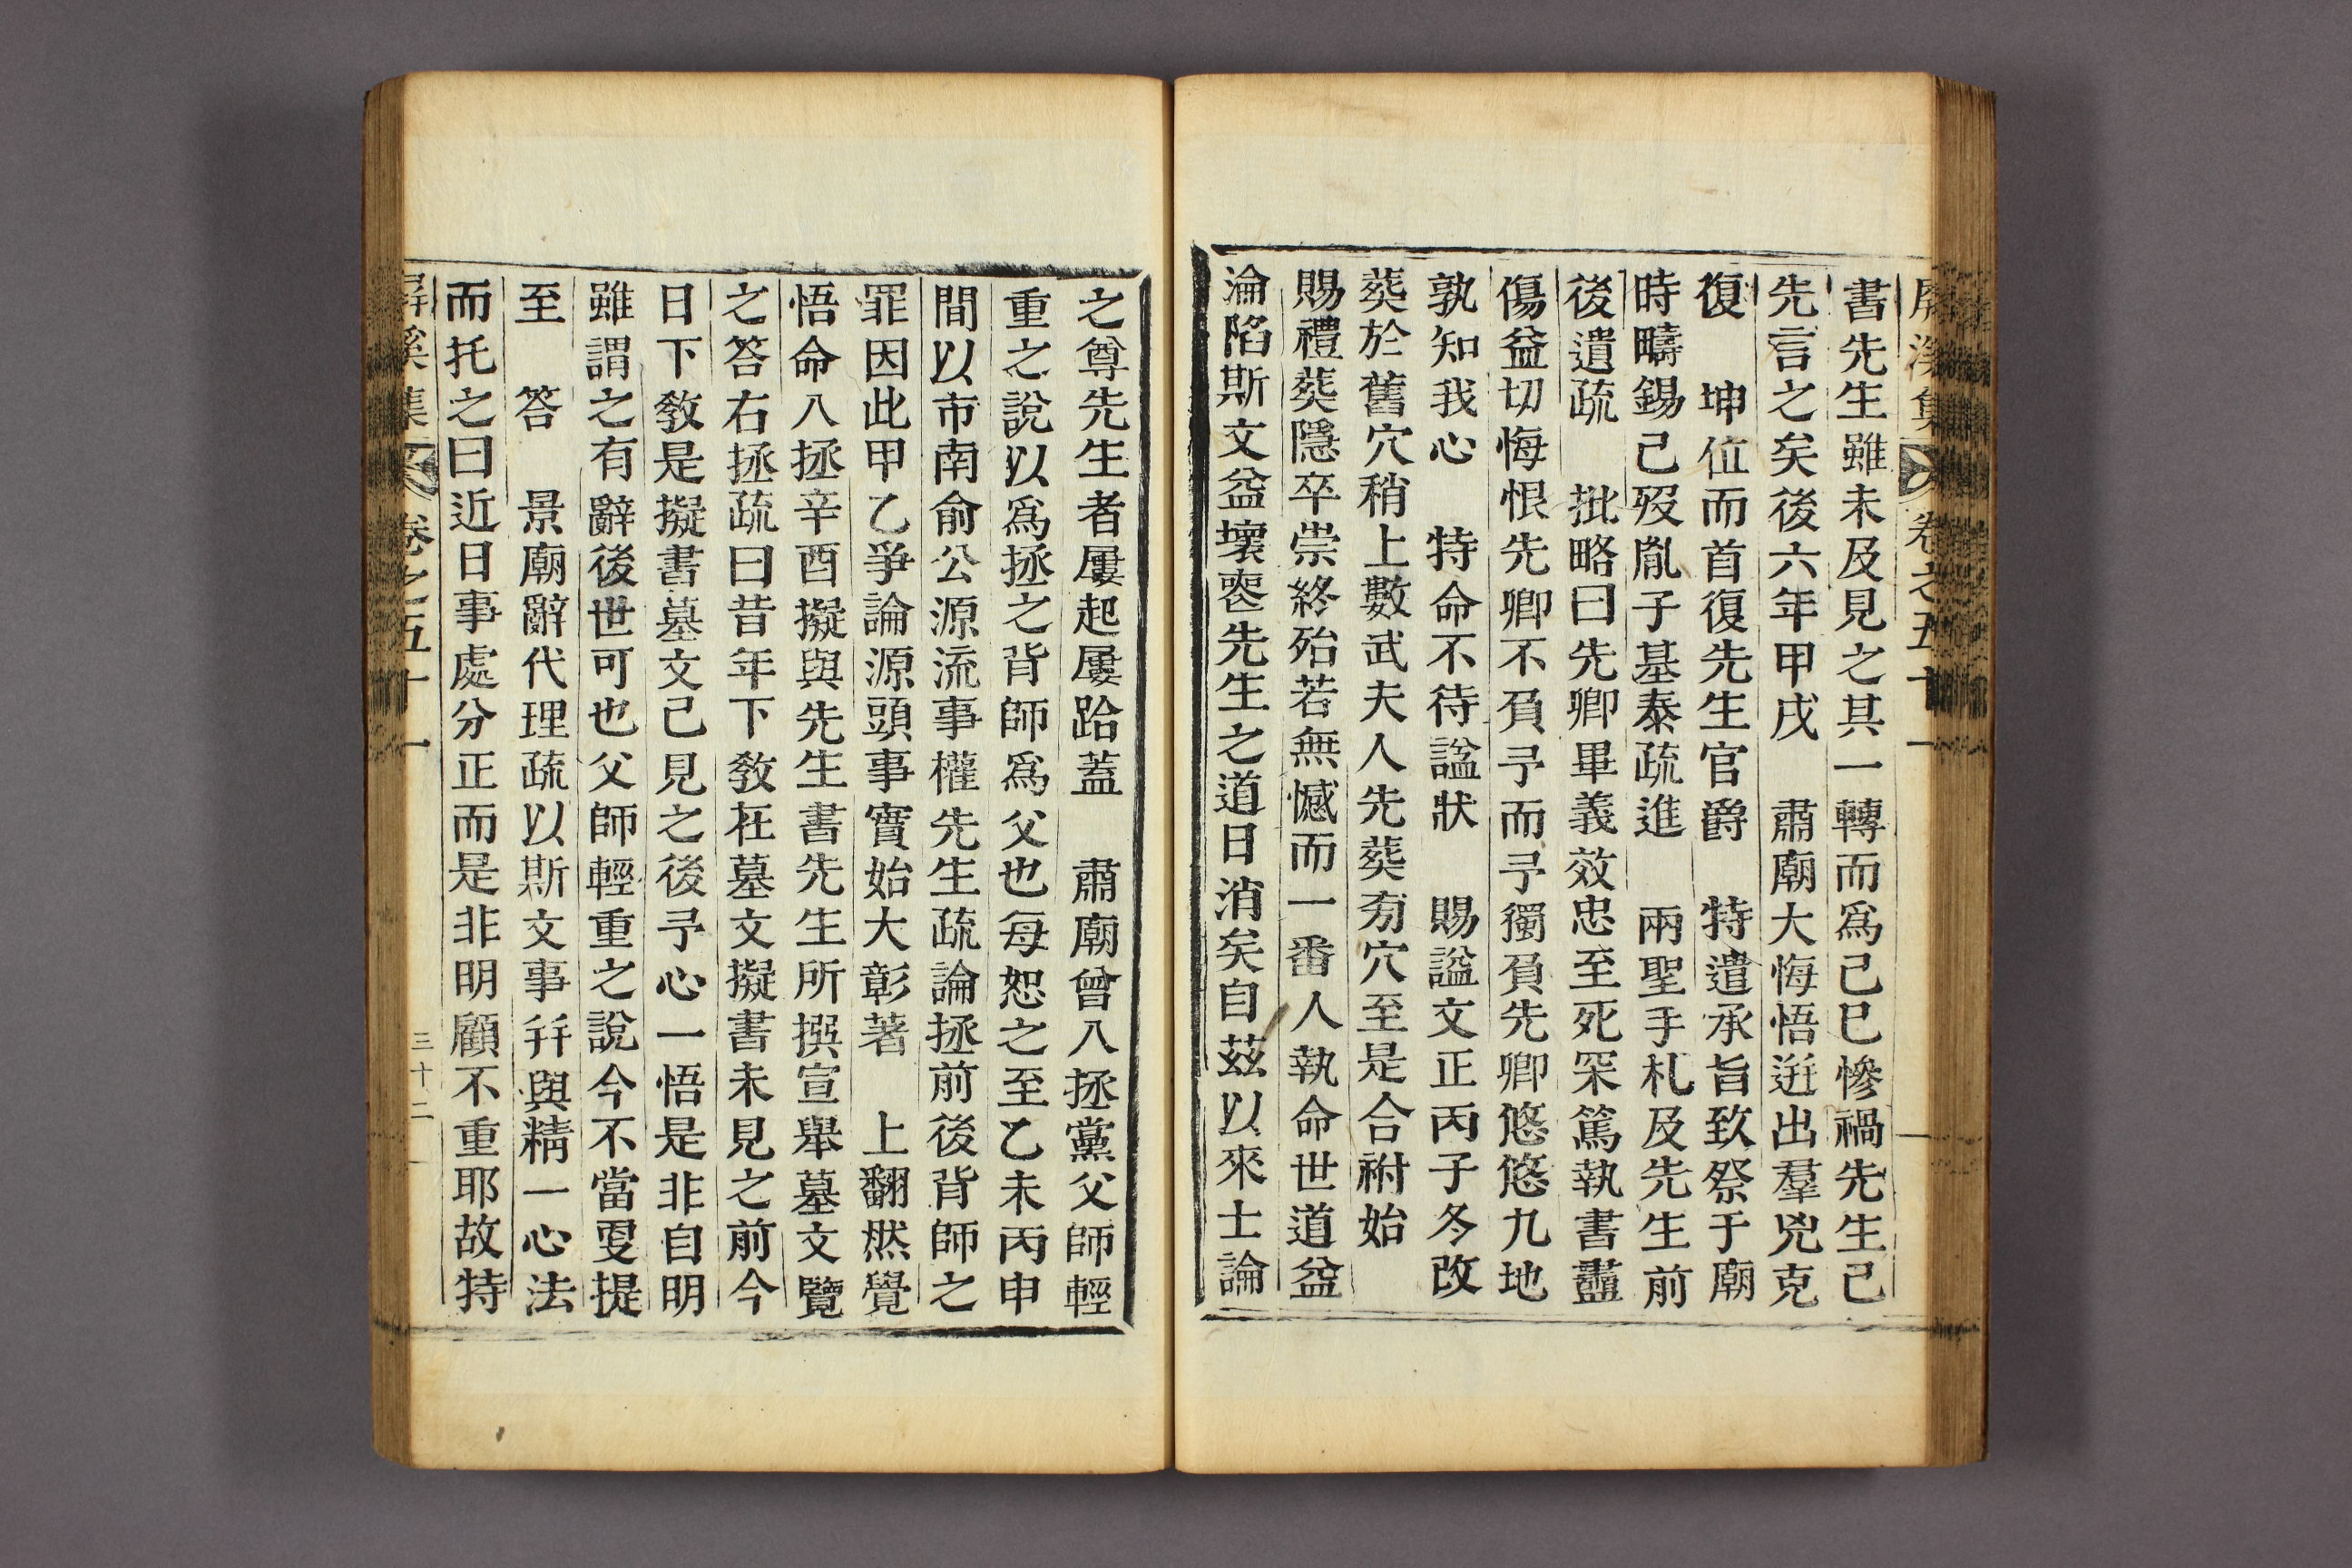 屛溪集 卷之五十一
書先生雖未及見之其一轉而爲己巳慘禍先生已
先言之矣後六年甲戌 肅廟大悔悟迸出羣兇克
復 坤位而首復先生官爵 特遣承旨致祭于廟
時疇錫已歿胤子基泰疏進 兩聖手札及先生前
後遺疏 批略曰先卿畢義效忠至死冞篤執書衋
傷益切悔恨先卿不負予而予獨負先卿悠悠九地
孰知我心 特命不待諡狀 賜諡文正丙子冬改
葬於舊穴稍上數武夫人先葬旁穴至是合祔始
賜禮葬隱卒崇終殆若無憾而一番人執命世道益
淪陷斯文益壞喪先生之道日消矣自玆以來士論
之尊先生者屢起屢跲蓋 肅廟曾入拯黨父師輕
重之說以爲拯之背師爲父也每恕之至乙未丙申
間以市南俞公源流事權先生疏論拯前後背師之
罪因此甲乙爭論源頭事實始大彰著 上翻然覺
悟命入拯辛酉擬與先生書先生所撰宣擧墓文覽
之答右拯疏曰昔年下敎在墓文擬書未見之前今
日下敎是擬書墓文已見之後予心一悟是非自明
雖謂之有辭後世可也父師輕重之說今不當更提
至 答 景廟辭代理疏以斯文事幷與精一心法
而托之曰近日事處分正而是非明顧不重耶故特
屛溪集 卷之五十一 三十二